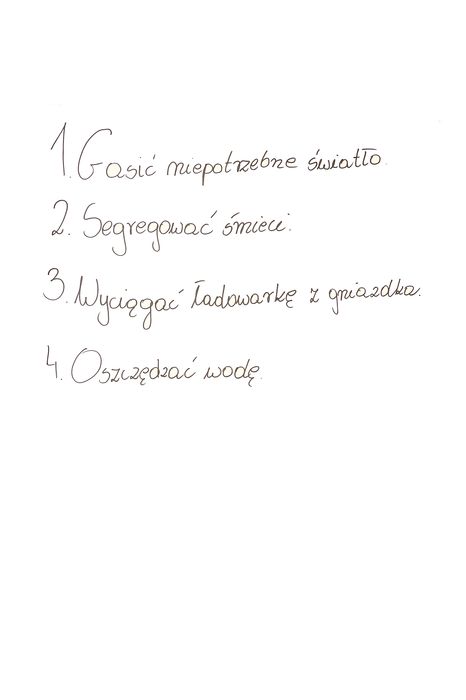 1. Gasić niepotrzebne światło.
2. Segregować śmieci.
3. Wycięgać ładowarkę z gniazdka.
4. Oszczędzać wodę.